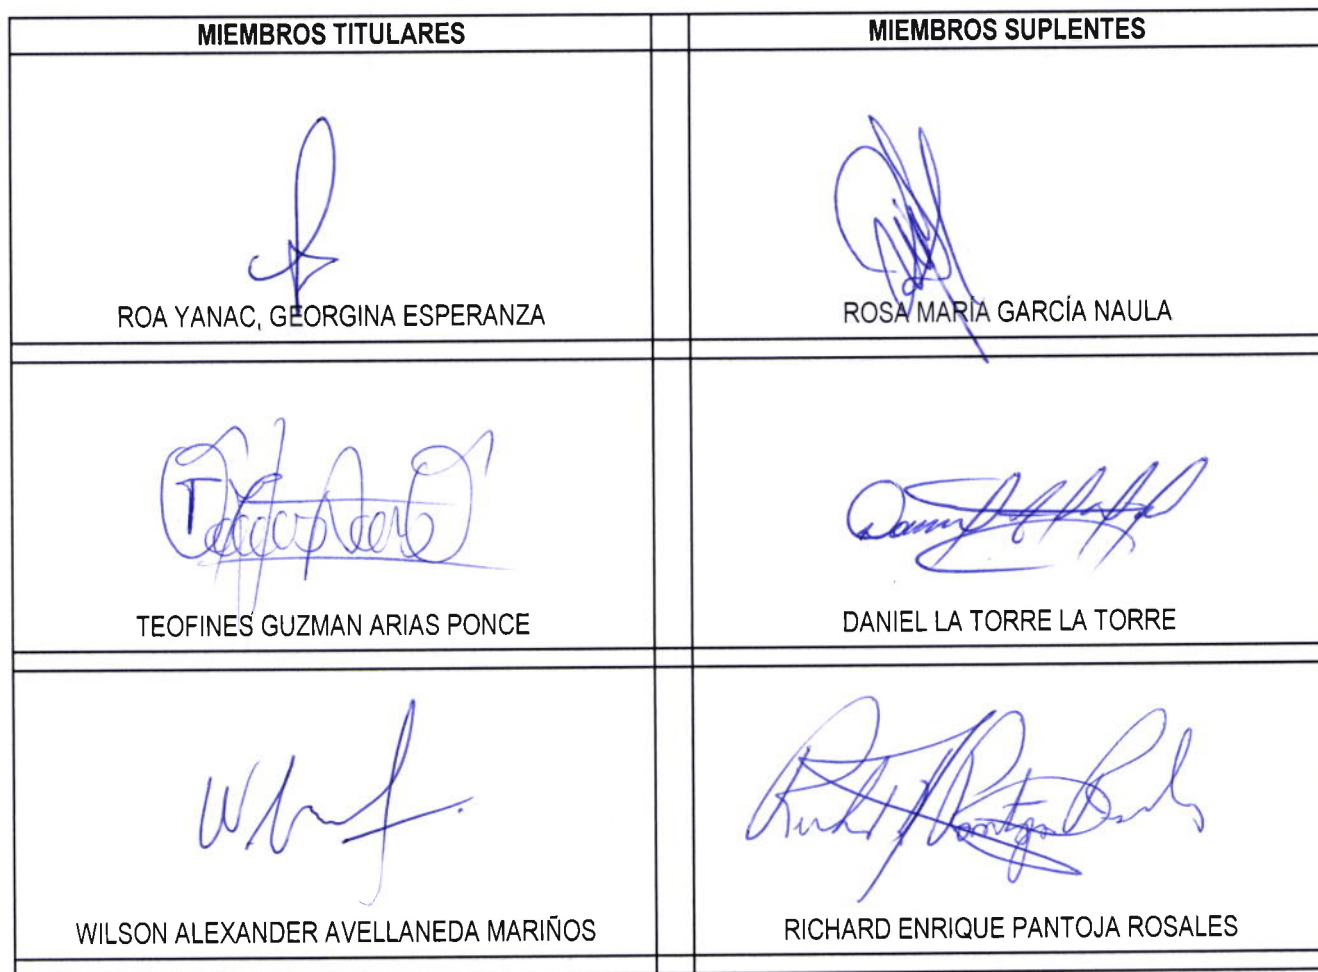 MIEMBROS TITULARES
MIEMBROS SUPLENTES
ROA YANAC, GEORGINA ESPERANZA
ROSA MARÍA GARCÍA NAULA
TEOFINES GUZMAN ARIAS PONCE
DANIEL LA TORRE LA TORRE
WILSON ALEXANDER AVELLANEDA MARIÑOS
RICHARD ENRIQUE PANTOJA ROSALES